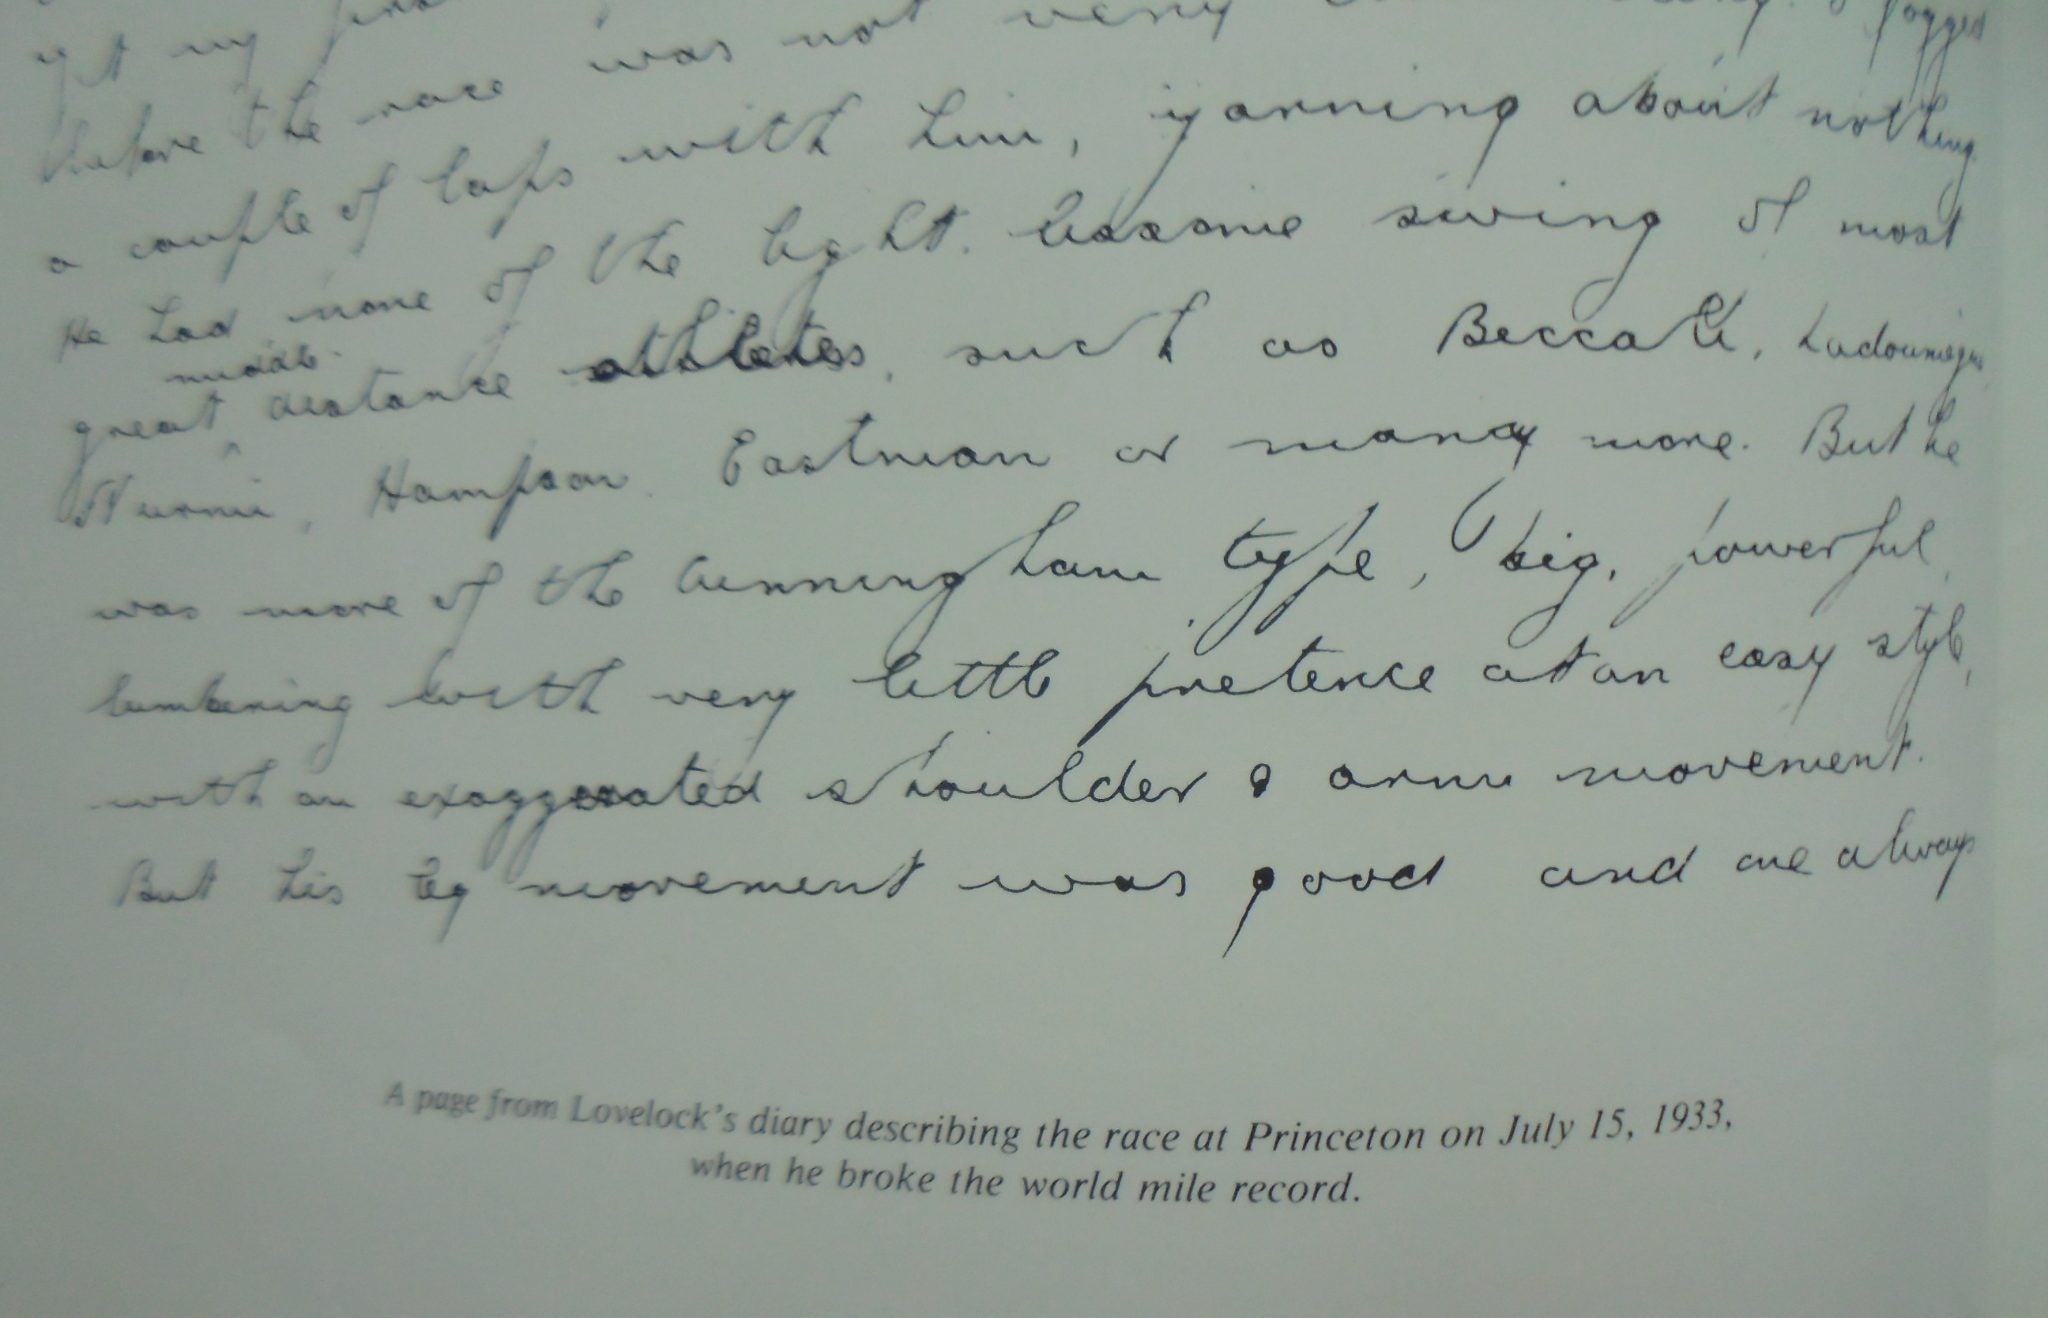 my
before the race was not very I jogged
a couple of laps with him, yarning about nothing.
He had none of the light lissome swing of most
middle
great distance athletes, such as Beccali, Ladoumegue
Nurmi, Hampson, Eastman or many more. But he
was more of the Cunningham type, big, powerful,
lumbering with very little pretence at an easy style,
with an exaggerated shoulder & arm movement.
But his leg movement was good and one always
A page from Lovelock's diary describing the race at Princeton on July 15, 1933,
when he broke the world mile record.